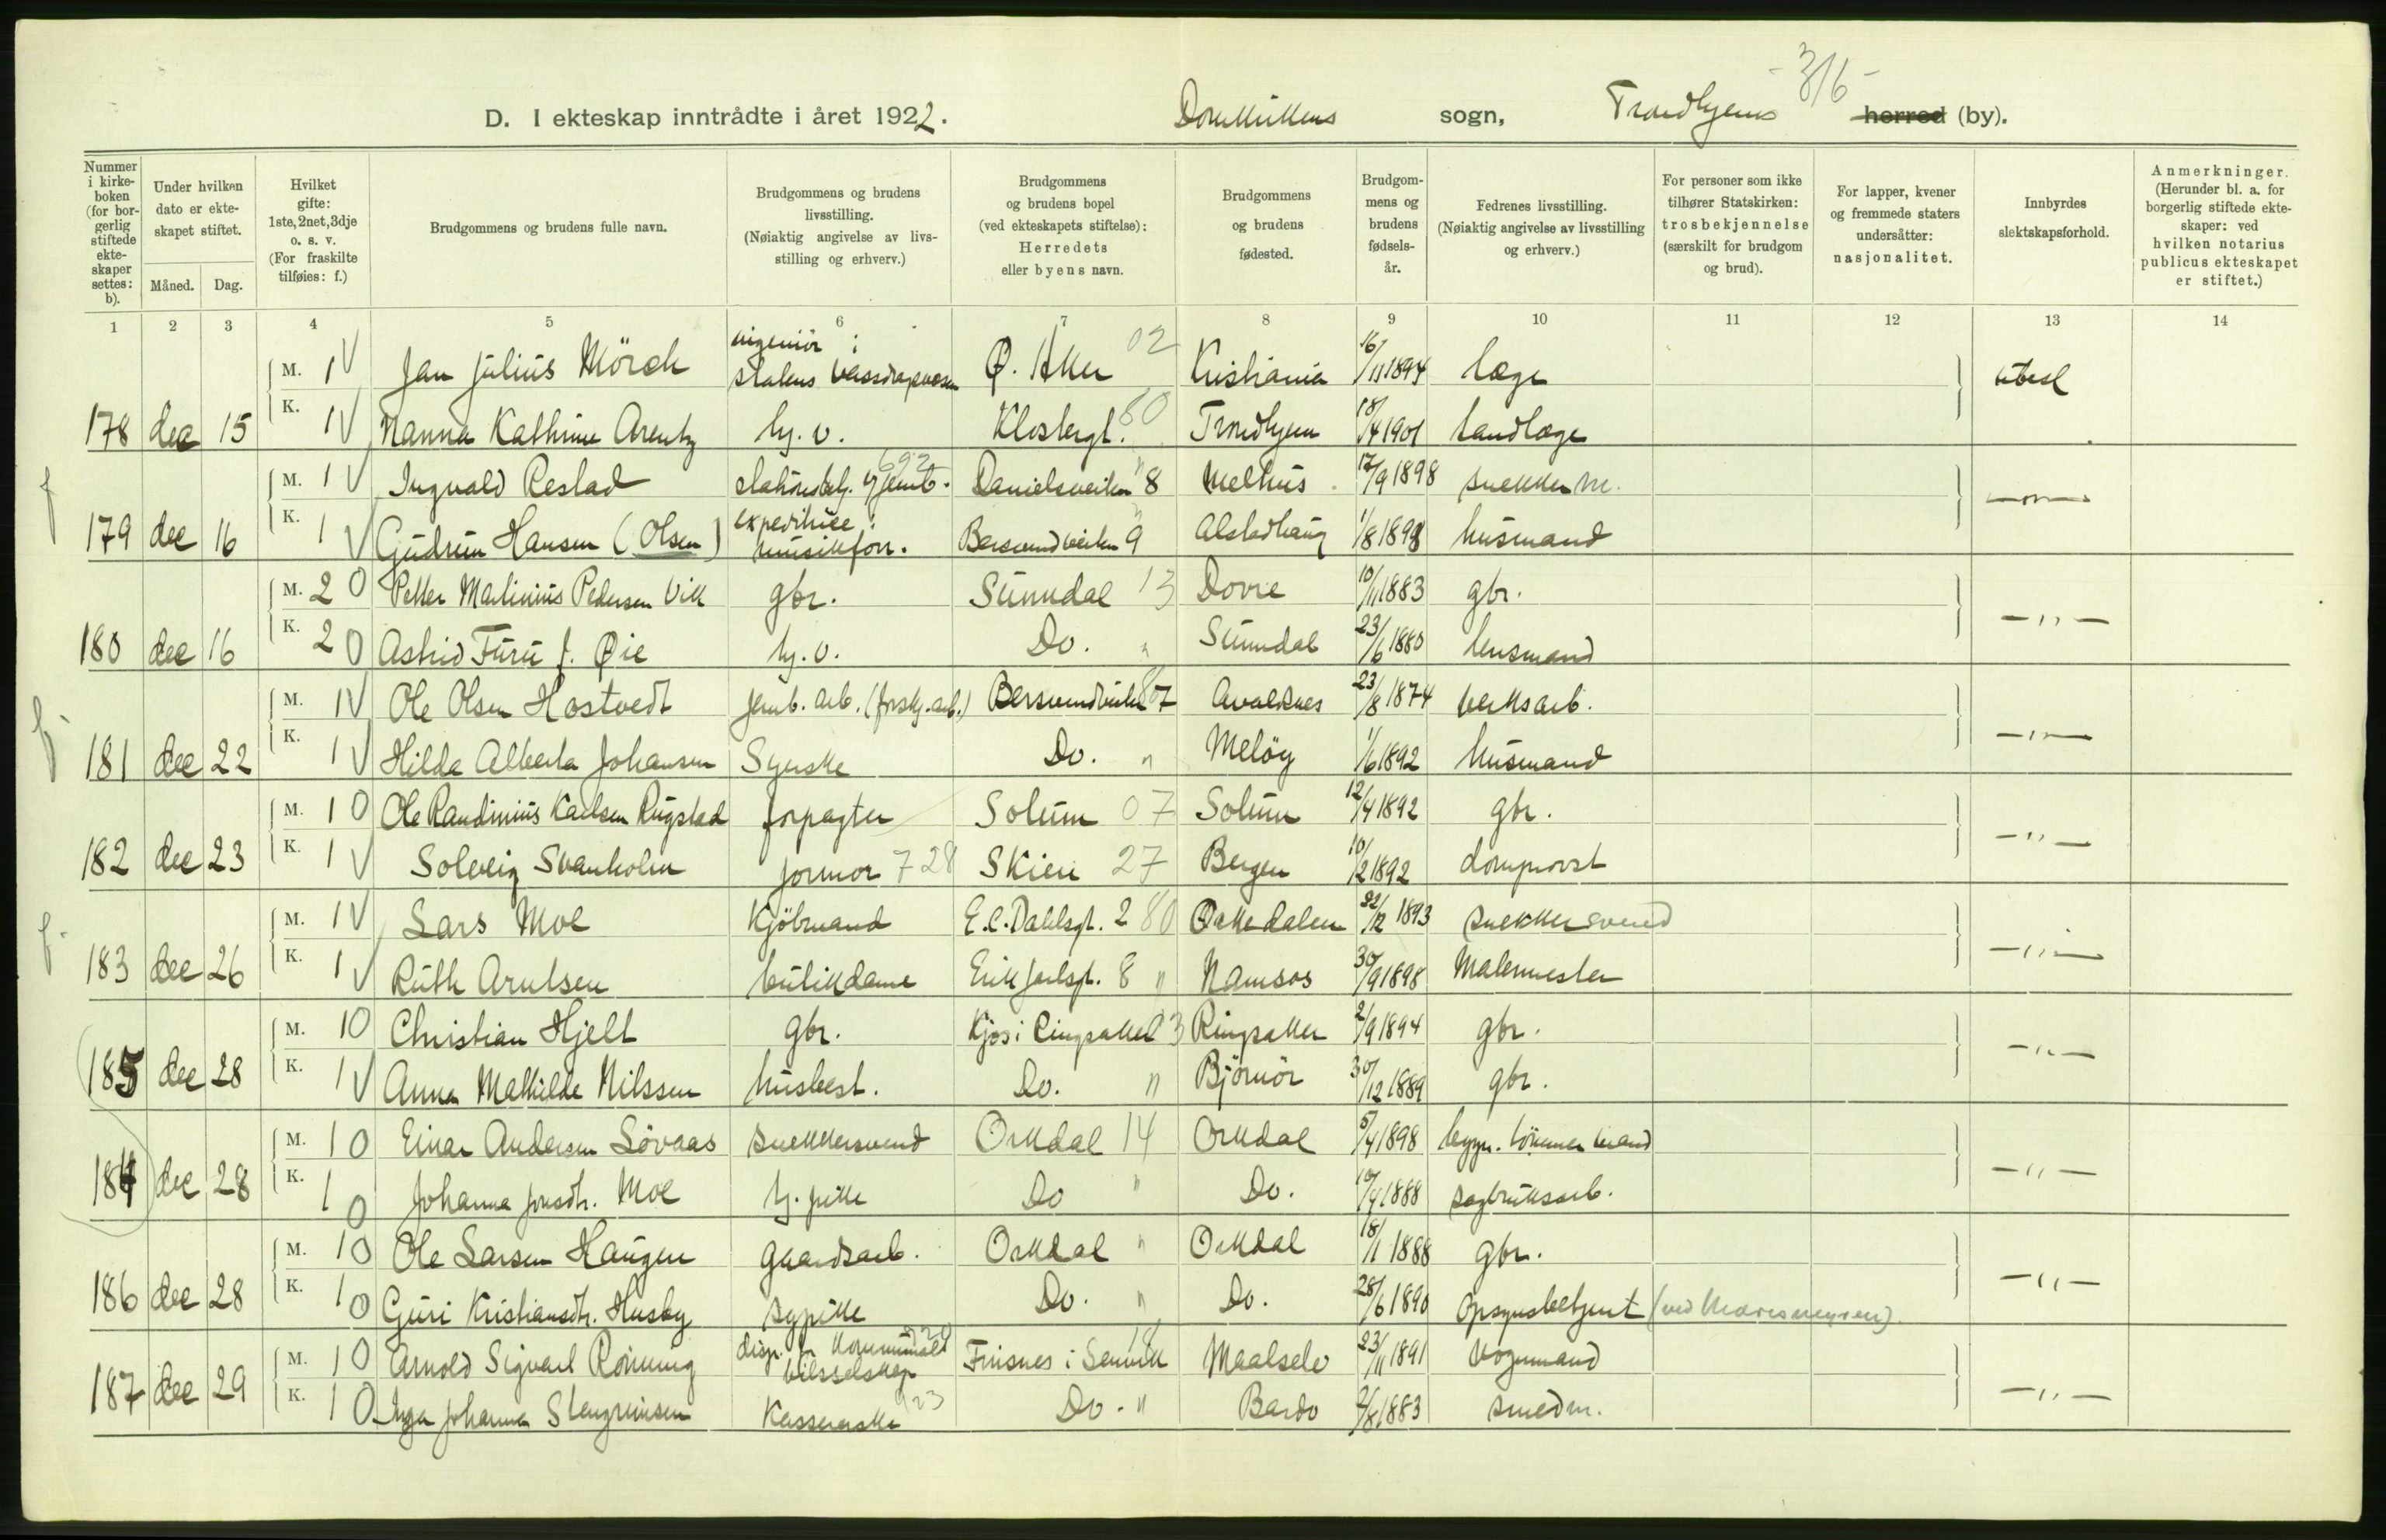 - 3/6 -
D. I ekteskap inntrådte i året 1922. Domkirkens sogn, Trondhjems herred (by).
Nummer i kirkeboken (for borgerlig stiftede ekteskaper settes: b). Under hvilken dato er ekteskapet stiftet. Måned. Dag. Hvilket gifte: 1ste, 2net, 3dje o. s. v. (For fraskilte tilføies: f.) Brudgommens og brudens fulle navn. Brudgommens og brudens livsstilling. (Nøiaktig angivelse av livsstilling og erhverv.) Brudgommens og brudens bopel (ved ekteskapets stiftelse): Herredets eller byens navn. Brudgommens og brudens fødested. Brudgommens og brudens fødselsår. Fedrenes livsstilling. (Nøiaktig angivelse av livsstilling og erhverv.) For personer som ikke tilhører Statskirken: trosbekjennelse (særskilt for brudgom og brud). For lapper, kvener og fremmede staters undersåtter: nasjonalitet. Innbyrdes slektskapsforhold. Anmerkninger. (Herunder bl. a. for borgerlig stiftede ekteskaper: ved hvilken notarius publicus ekteskapet er stiftet.)
1 2 3 4 5 6 7 8 9 10 11 12 13 14
M. 1 V Jan Julius Mörch ingeniör i statens vassdragsvæsen Ø. Aker 02 Kristiania 16/11 1894 læge ubesl
178 dec 15 K. 1 V Nanna Kathrine Arentz hj. v. Klostergt. 80 Trondhjem 18/4 1901 tandlæge
f M. 1 V Ingvald Restad stationsbetj. v/ Jernb. 692 Danielsveiten 8 " Melhus 17/9 1898 snekkerm. - " -
179 dec 16 K. 1 V Gudrun Hansen (Olsen) expeditrice i musikforr. Bersvendveiten 9 " Alstadhaug 1/8 1898 husmand
M. 2 0 Petter Martinius Pedersen Vik gbr. Sunndal 13 Dovre 10/11 1883 gbr. - " -
180 dec 16 K. 2 0 Astrid Furu f. Øie hj. v. Do. " Sunndal 23/6 1880 lensmand
f. M. 1 V Ole Olsen Hostvedt jernb. arb. (forskj. arb.) Bersvendveiten 7 80 Avaldsnes 23/8 1874 verksarb. - " -
181 dec 22 K. 1 V Hilda Alberta Johansen Syerske Do. " Melöy 1/6 1892 husmand
M. 1 0 Ole Randinius Karlsen Rugstad forpagter Solum 07 Solum 12/4 1892 gbr. - " -
182 dec 23 K. 1 V Solveig Svanholm jormor 728 Skien 27 Bergen 10/2 1892 domprovst
f. M. 1 V Lars Moe Kjöbmand E. C. Dahlsgt. 2 80 Orkedalen 22/12 1893 snekkersvend - " -
183 dec 26 K. 1 V Ruth Arntsen butikdame Erik Jarlsgt. 8 " Namsos 30/9 1898 Malermester
M. 1 0 Christian Hjelt gbr. Kjos i Ringsaker 03 Ringsaker 2/9 1894 gbr. - " -
185 dec 28 K. 1 V Anna Mathilde Nilssen husbest. Do. " Björnör 30/12 1889 gbr.
M. 1 0 Einar Andersen Lövaas snekkersvend Orkdal 14 Orkdal 5/4 1898 bygn. tömmermand - " -
184 dec 28 K. 1 0 Johanna Jonsdtr. Moe hj. pike Do " Do. 10/4 1888 sagbruksarb.
M. 1 0 Ole Larsen Haugen gaardsarb. Orkdal " Orkdal 18/1 1888 gbr. - " -
186 dec 28 K. 1 0 Guri Kristiansdtr. Husby sypike Do. " Do. 28/6 1890 Opsynsbetjent
M. 1 0 Arnold Sigvart Rönning disp. for kommunalt bilselskap Finsnes i Senvik 18 Maalselv 23/11 1891 Vognmand - " -
187 dec 29 K. 1 0 Inga Johanna Stengrimsen Kassererske 923 Do. " Bardo 2/8 1883 smedm.